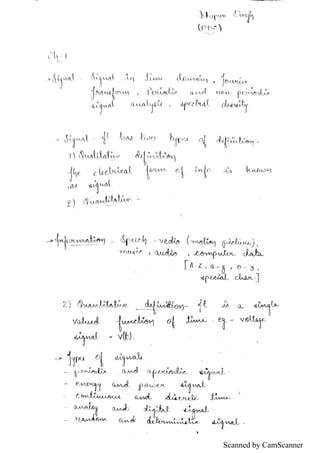 Nupur Singh
(PDC)
Ch. 1
→ Signal - Signal in time domain, fourier
transform, Periodic and non-periodic
signal analysis, spectral density
→ Signal - It has two types of definition -
1) Qualitative definition
The electrical form of info. is known
as signal
2) Quantitative -
→ Information - Speech, vedio (motion picture),
music, audio, computer data
[A-Z, a-z, 0-9,
special char.]
2) Quantitative definition - It is a single
valued function of time. eg - voltage
signal = v(t).
→ Types of signals
- periodic and aperiodic signal.
- energy and power signal.
- continuous and discrete time.
- analog and digital signal.
- random and deterministic signal.
Scanned by CamScanner